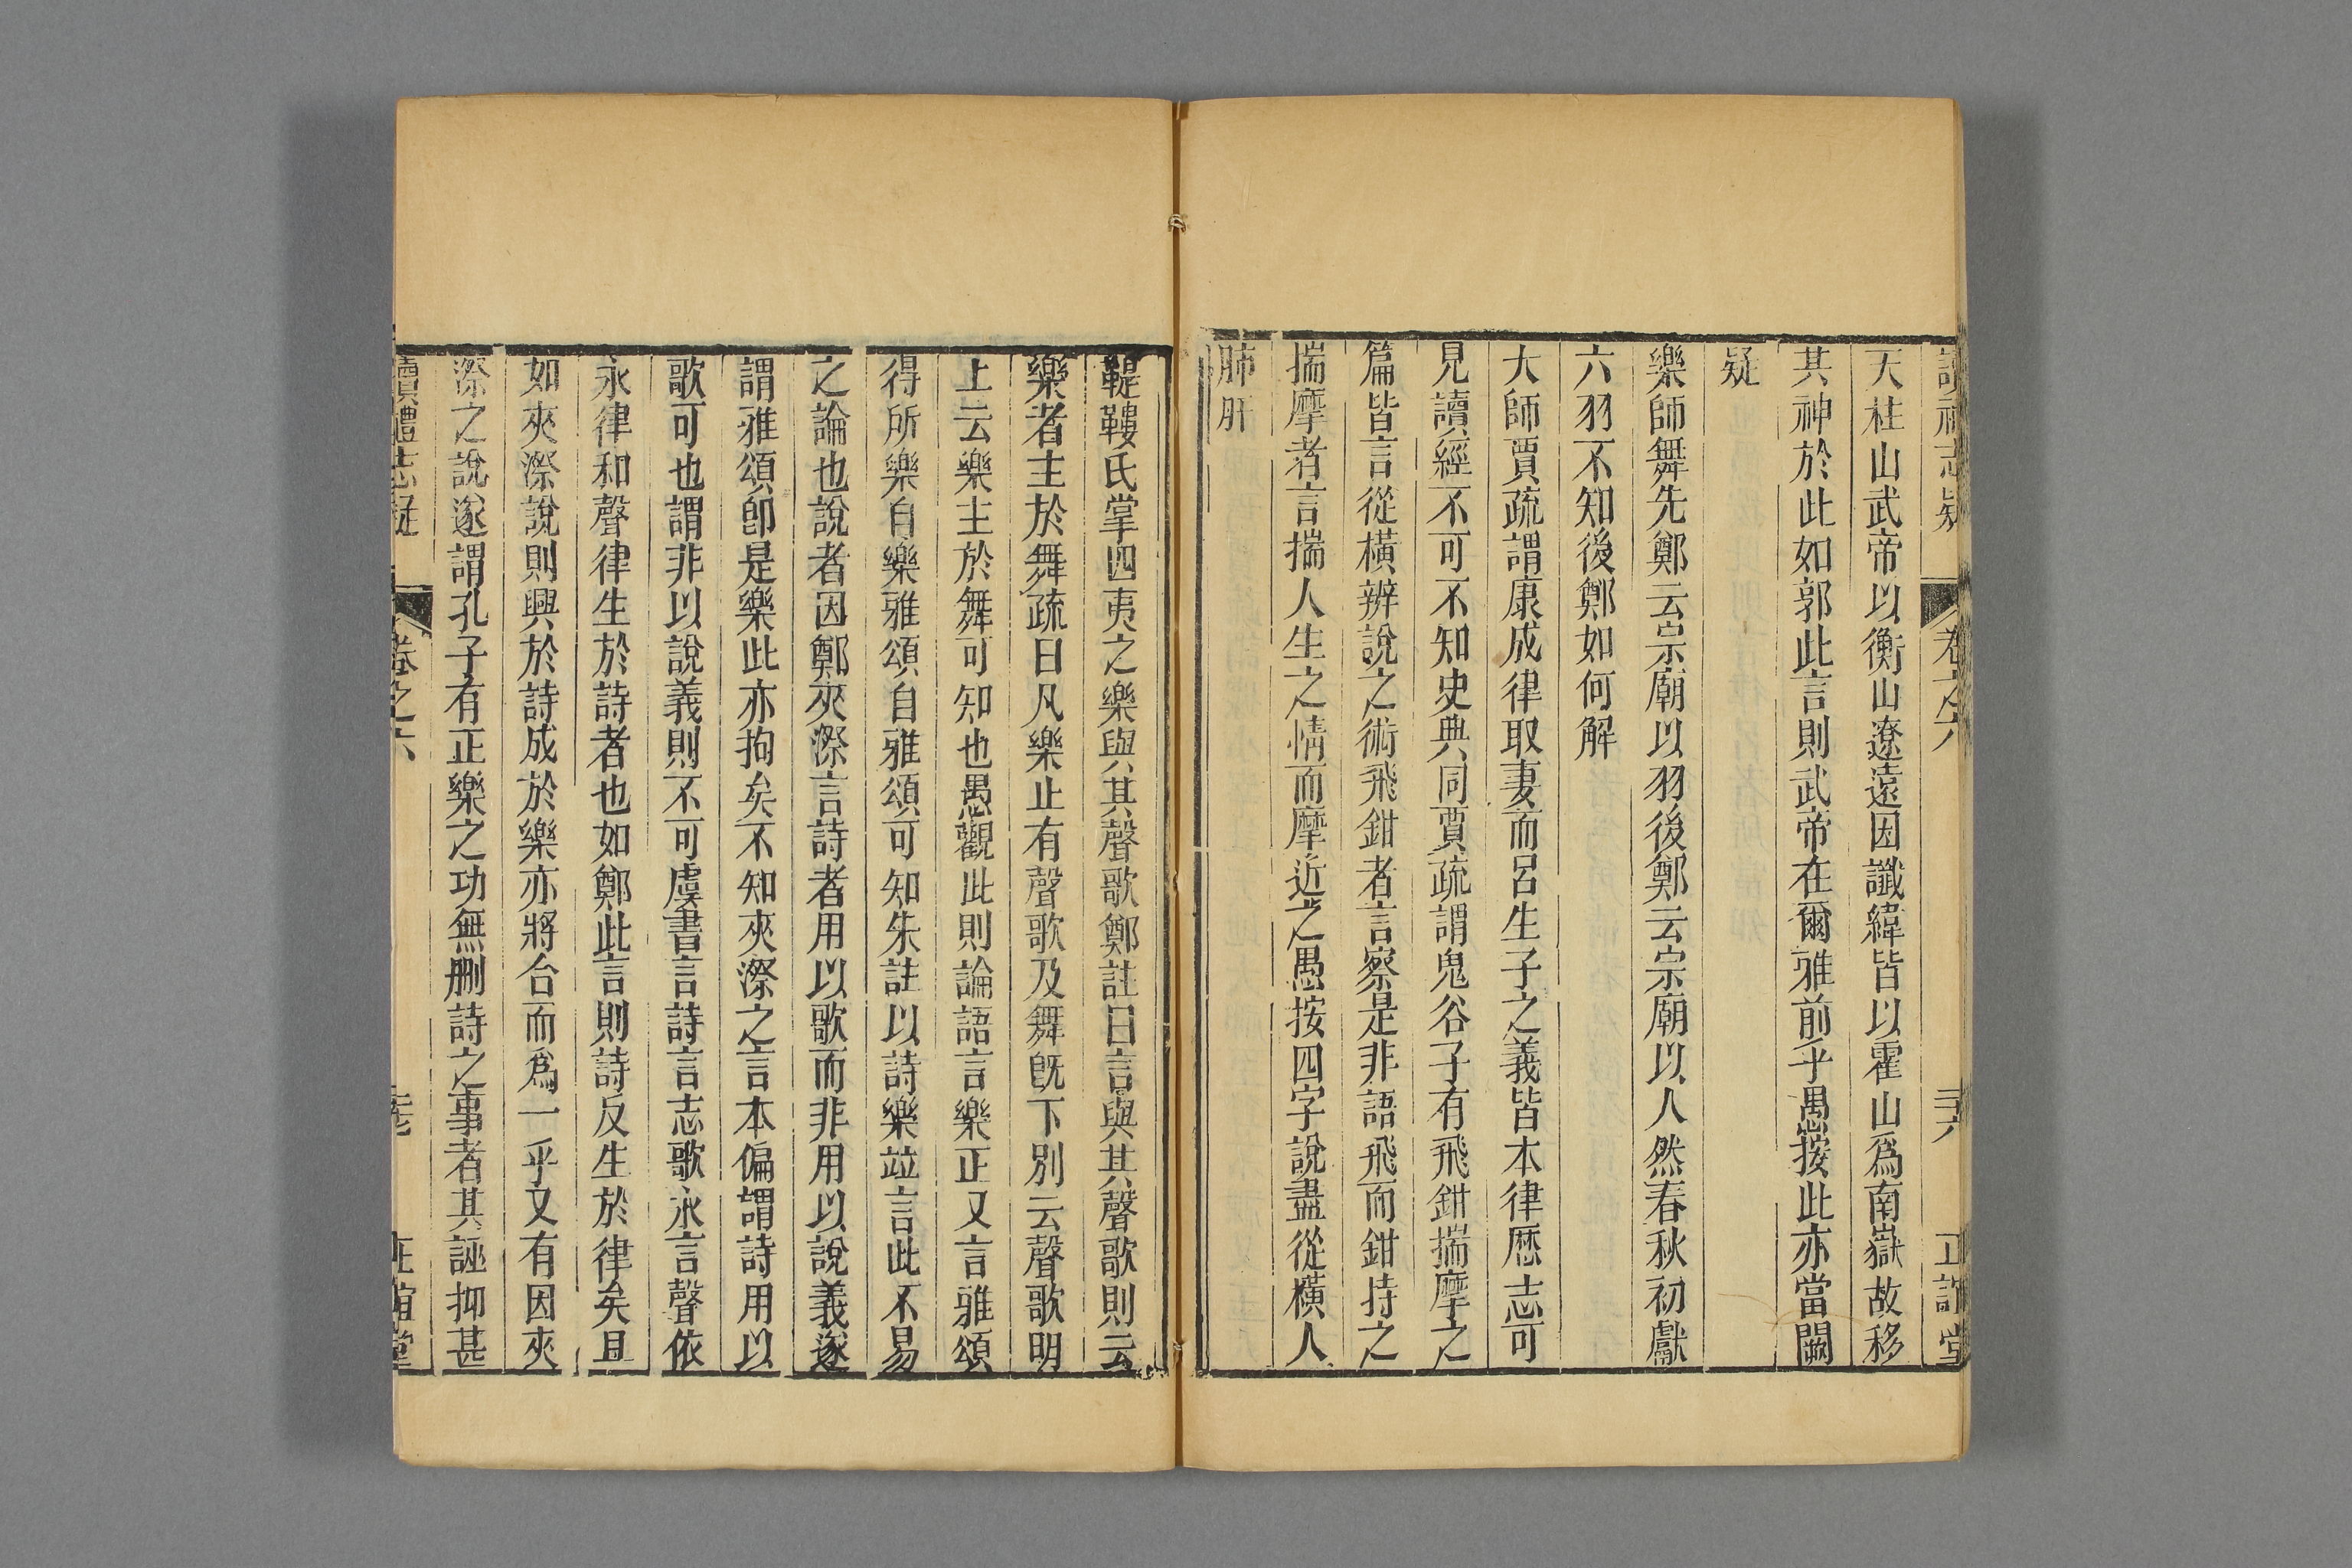 讀禮志疑 卷之六 三六 正誼堂
天柱山武帝以衡山遼遠因讖緯皆以霍山爲南嶽故移
其神於此如郭此言則武帝在爾雅前乎愚按此亦當闕
疑
樂師舞先鄭云宗廟以羽後鄭云宗廟以人然春秋初獻
六羽不知後鄭如何解
大師賈疏謂康成律取妻而呂生子之義皆本律厯志可
見讀經不可不知史典同賈疏謂鬼谷子有飛鉗揣摩之
篇皆言從橫辨說之術飛鉗者言察是非語飛而鉗持之
揣摩者言揣人生之情而摩近之愚按四字說盡從橫人
肺肝
鞮鞻氏掌四夷之樂與其聲歌鄭註曰言與其聲歌則云
樂者主於舞疏曰凡樂止有聲歌及舞旣下別云聲歌明
上云樂主於舞可知也愚觀此則論語言樂正又言雅頌
得所樂自樂雅頌自雅頌可知朱註以詩樂竝言此不易
之論也說者因鄭夾漈言詩者用以歌而非用以說義遂
謂雅頌卽是樂此亦拘矣不知夾漈之言本偏謂詩用以
歌可也謂非以說義則不可虞書言詩言志歌永言聲依
永律和聲律生於詩者也如鄭此言則詩反生於律矣且
如夾漈說則興於詩成於樂亦將合而爲一乎又有因夾
漈之說遂謂孔子有正樂之功無刪詩之事者其誣抑甚
讀禮志疑 卷之六 三七 正誼堂